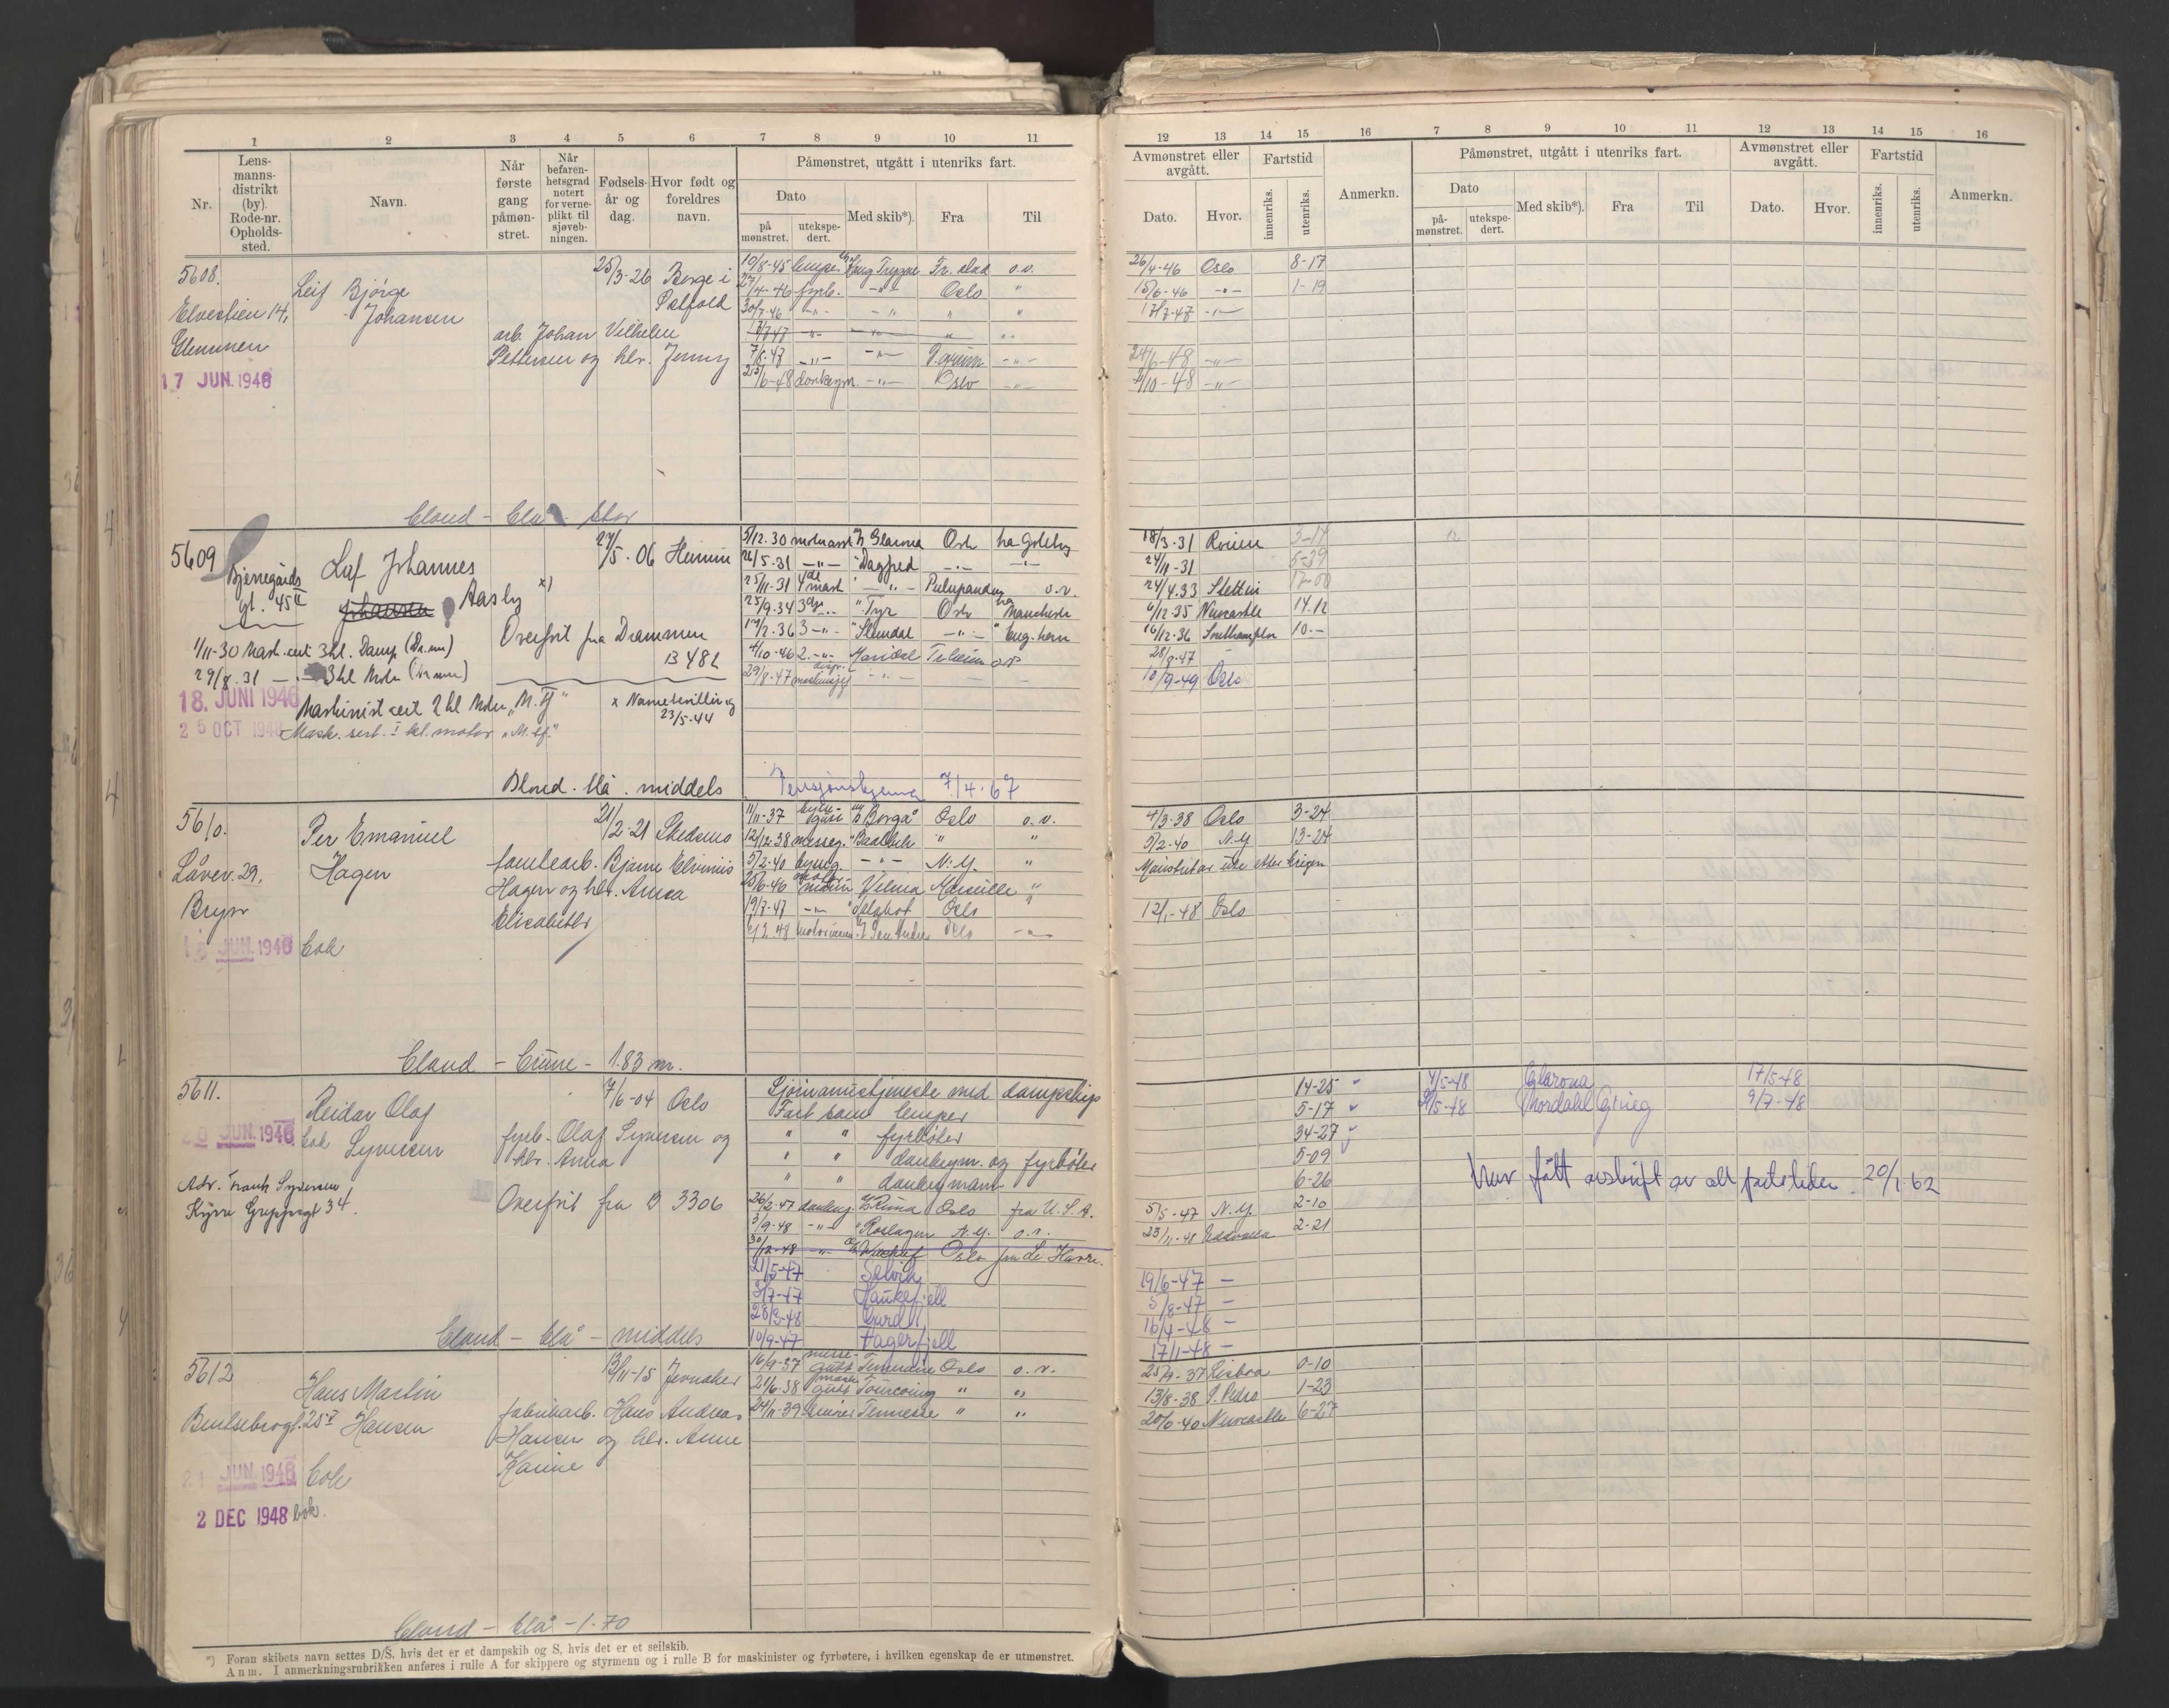 1 2 3 4 5 6 7 8 9 10 11
Nr.
Lens-
manns-
distrikt
(by).
Rode-nr.
Opholds-
sted.
Navn.
Når
første
gang
påmøn-
stret.
Når
befaren-
hetsgrad
notert
for verne-
plikt til
sjøveb-
ningen.
Fødsels-
år og
dag.
Hvor født og
foreldres
navn.
Påmønstret, utgått i utenriks fart.
Dato
på
mønstret.
utekspe-
dert.
Med skib*).
Fra
Til
5608.
Elvestien 14,
Glemmen
17 JUN. 1946
Leif Bjørge
Johansen
25/3-26 Borge i
Østfold
arb. Johan Vilhelm
Pettersen og hv. Jenny
10/8-45 lemper Kong Trygve Fr. stad o.v.
27/4-46 fyrb. -"- Oslo "
30/7-46 -"- -"- " "
17/7 47 -"- -"- " "
7/8-47 -"- -"- -"-
25/6-48 donkeym. -"- Oslo -"-
Blond - blå - stor
5609
Bjerregårds
gt. 45 II
Leif Johannes
Johansen Aasby x)
27/5-06
Overført fra Drammen
B 482
1/11-30 Mask.cert 3 kl. Damp (Dr.mn)
29/8.31 -"- 3 kl Motor (Dr mn)
18. JUNI 1946
Maskinist cert 2 kl Motor "M. Tj"
25 OCT 1948 Mask. sert. I kl. motor "M. tj."
x Navnebevilling
23/5-44
5/12.30 motorasst Glarona Oslo ha Gøteborg
26/5-31 -"- "Dagfred -"- -"-
25/11-31 4de mask " -"- Pulupandang o.v.
25/9.34 3dje -"- "Tyr Oslo Manchester
17/2.36 3 -"- "Stensdal -"- Eng. havn
4/10-46 2. -"- Maridal Trheim o.v.
29/8-47 maskinsjef -"-
Blond. blå. middels
Pensjonsskjema 7/4-67
5610.
Låvev. 29,
Bryn
18 JUN. 1946 bok
Per Emanuel
Hagen
21/2-21 Skedsmo
tomtearb. Bjarne Elvinius
Hagen og hv. Anna
Elisabeth
11/11-37 byssegutt Borgå Oslo o.v.
12/12-38 messeg. " " "
5/2-40 -"- N.Y. "
25/6-46 Velma Marseille "
19/7-47 -"- Oslo "
48 motormann Oslo -"-
Blond - brune - 1.83 m.
5611.
20 JUN. 1946 bok
Reidar Olaf
Syversen
7/6-04 Oslo
fyrb. Olaf Syversen og
hv. Anna
Adr. Frank Syversen
Kjøre Greppsgt 34.
Overført fra B 3306
Sjømannstjeneste med dampskip
Fart som lemper
" " fyrbøter
" " donkeym. og fyrbøter
" " donkeymann
26/2-47 donkeyp. Runa Oslo fra U.S.A.
3/9-48 -"- "Roslagen N.Y. o.v.
30/12-48 -"- Oslo fra Le Havre.
21/5-47 Selvik
3/7-47 Haukefjell
28/3-48 Gurd
10/9-47 Hagerfjell
Blond - blå - middels
5612
Bentsebrogt. 25 I
21 JUN. 1946 bok
2 DEC 1948 bok.
Hans Martin
Hansen
13/11-15 Jevnaker
fabrikkarb. Hans Andreas
Hansen og hv. Anne
Karine
16/9-37 messegutt Temeraire Oslo o.v.
21/6-38 gutt Tourcoing " "
24/11-39 Tennessee " "
Blond - blå - 1.70
*) Foran skibets navn settes D/S, hvis det er et dampskib og S, hvis det er et seilskib.
Anm. I anmerkningsrubrikken anføres i rulle A for skippere og styrmenn og i rulle B for maskinister og fyrbøtere, i hvilken egenskap de er utmønstret.
12 13 14 15 16 7 8 9 10 11 12 13 14 15 16
Avmønstret eller
avgått.
Dato.
Hvor.
Fartstid
innenriks.
utenriks.
Anmerkn.
Påmønstret, utgått i utenriks fart.
Dato
på-
mønstret.
utekspe-
dert.
Med skib*).
Fra
Til
Avmønstret eller
avgått.
Dato.
Hvor.
Fartstid
innenriks.
utenriks.
Anmerkn.
26/4-46 Oslo 8-17
15/6-46 -"- 1-19
17/7-47 -"-
24/6-48 -"-
9/10-48 -"-
18/3-31 Rouen 3-14
24/11-31 5-29
24/4.33 Stettin 17-00
6/12.35 Newcastle 14.12
16/12-36 Southampton 10.-
28/8-47
10/9-49 Oslo
4/3-38 Oslo 3-24
5/2-40 N.Y 13-24
Mønstret av ute etter krigen
12/1-48 Oslo
14-25 4/5-48 Glarona 17/5-48
5-17 21/5-48 Nordahl Grieg 9/7-48
34-27
5-09
6-26
Har fått avskrift av all fartstiden. 20/1-62
5/5-47 N.Y. 2-10
23/11-48 2-21
19/6-47 -
5/8-47 -
16/4-48 -
17/1-48 -
25/11-37 Lisboa 0-10
13/8-38 S. Pedro 1-23
20/6-40 Newcastle 6-27